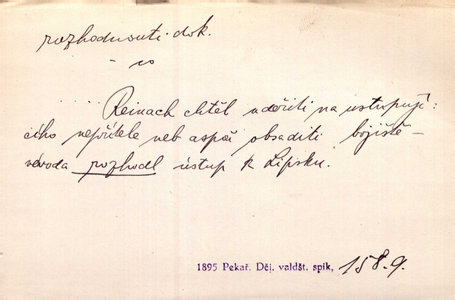 rozhodnouti dok.
- o
Reinach chtěl udeřiti na ustupují:
cího nepřítele neb aspoň obsaditi bojiště –
vévoda rozhodl ústup k Lipsku.
1895 Pekař. Děj. valdšt. spik, 158.9.